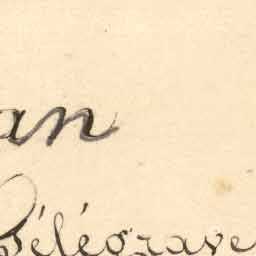 an
Télégrave